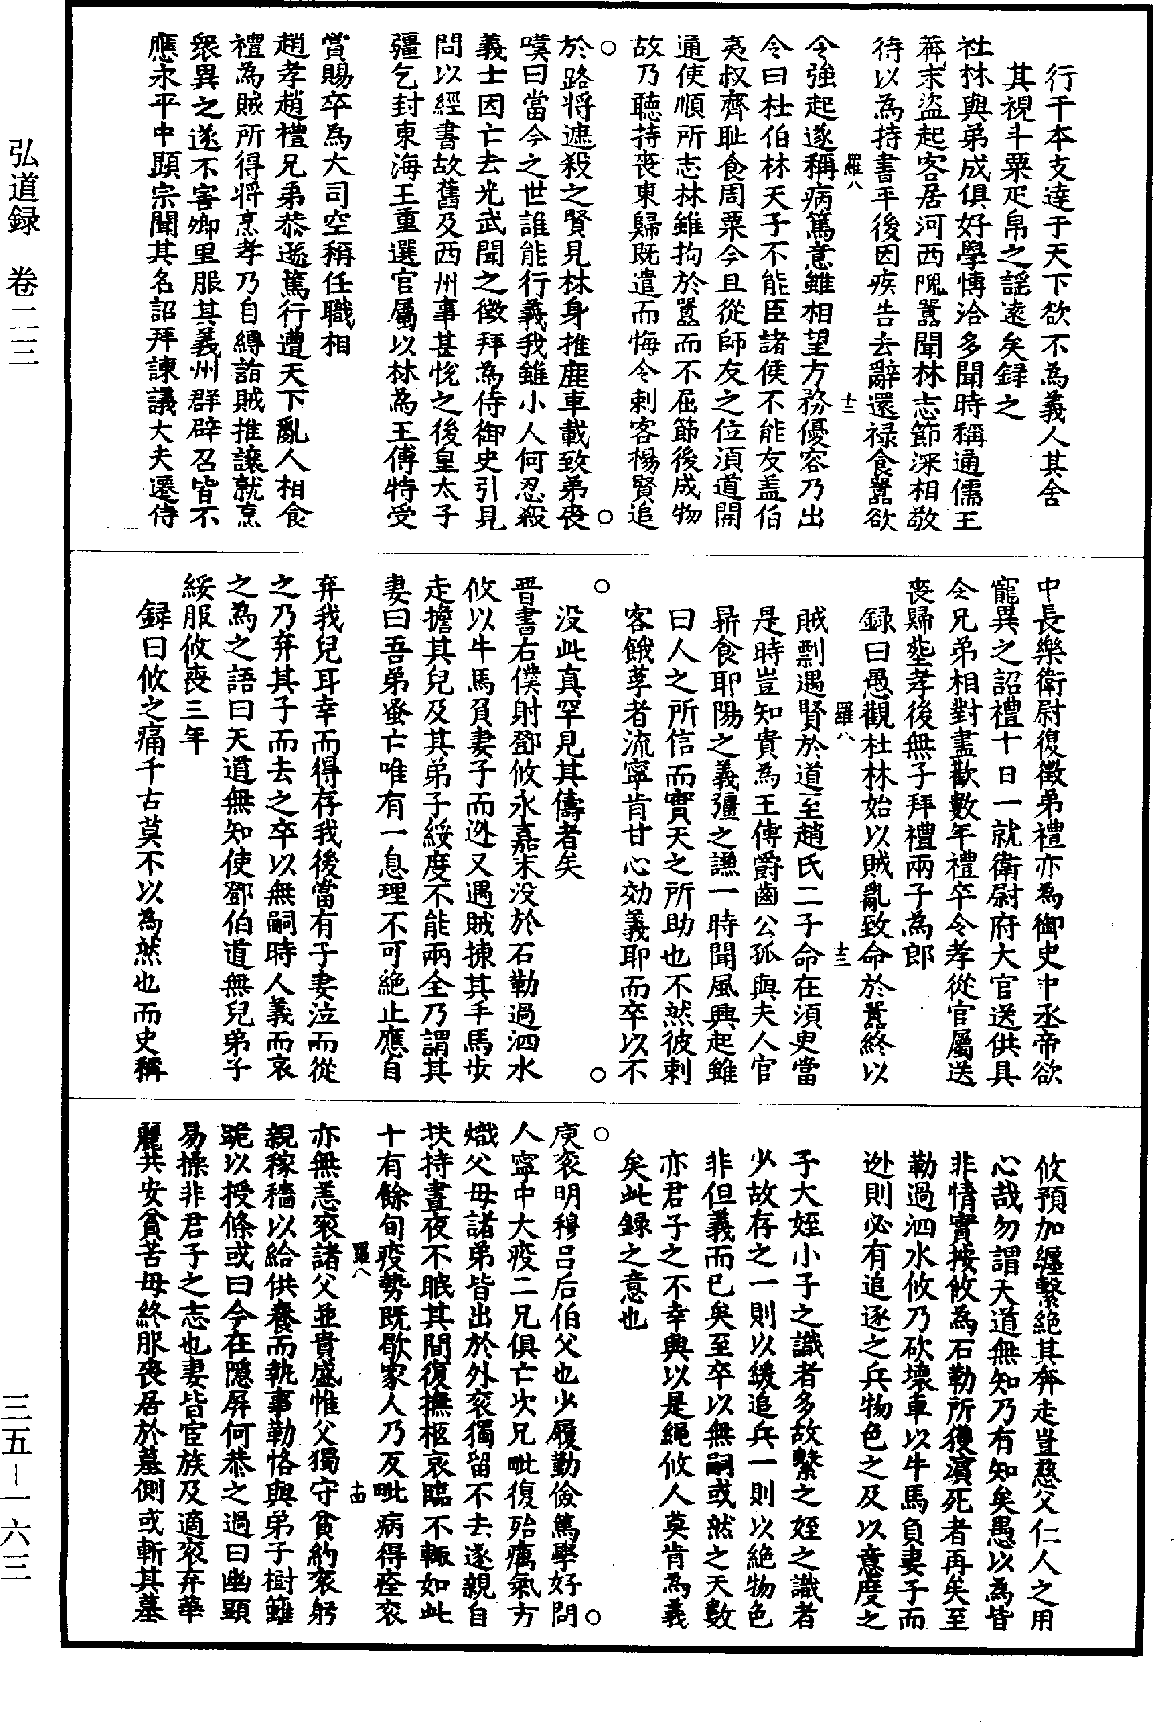 弘道録　卷二三
三五－一六三
行于本支達于天下欲不為義人其舍
其視斗粟疋帛之謡遠矣録之
社林與弟成俱好學博洽多聞時稱通儒王
莽末盗起客居河西隗囂聞林志節深相敬
待以為持書平後因疾告去辭還禄食囂欲
令強起遂稱病篤意雖相望方務優容乃出
令曰杜伯林天子不能臣諸侯不能友盖伯
夷叔齊耻食周粟今且從師友之位湏道開
通使順所志林雖拘於囂而不屈節後成物
故乃聽持喪東歸既遣而悔令剌客楊賢追
於路將遮殺之賢見林身推鹿車載致弟喪
嘆曰當今之世誰能行義我雖小人何忍殺
義士因亡去光武聞之徵拜為侍御史引見
問以經書故舊及西州事甚恱之後皇太子
疆乞封東海王重選官屬以林為王傅特受
賞賜卒為大司空稱任職相
趙孝趙禮兄弟恭遜篤行遭天下亂人相食
禮為賊所得將烹孝乃自縛詣賊推讓就烹
衆異之遂不害鄉里服其義州群辟召皆不
應永平中顯宗聞其名詔拜諫議大夫遷侍
羅八
十二
中長樂衛尉復徵弟禮亦為御史中丞帝欲
寵異之詔禮十日一就衛尉府大官送供具
令兄弟相對盡歡數年禮卒令孝從官屬送
喪歸塟孝後無子拜禮兩子為郎
録曰愚觀杜林始以賊亂致命於囂終以
賊剽遇賢於道至趙氏二子命在湏臾當
是時豈知貴為王傅爵齒公孤與夫人官
昇食耶陽之義疆之讌一時聞風興起雖
曰人之所信而實天之所助也不然彼剌
客餓莩者流寧肯甘心効義耶而卒以不
没此真罕見其儔者矣
晋書右僕射鄧攸永嘉末没於石勒過泗水
攸以牛馬負妻子而迯又遇賊揀其手馬歩
走擔其兒及其弟子綏度不能兩全乃謂其
妻曰吾弟蚤亡唯有一息理不可絶止應自
弃我兒耳幸而得存我後當有子妻泣而從
之乃弃其子而去之卒以無嗣時人義而哀
之為之語曰天道無知使鄧伯道無兒弟子
綏服攸喪三年
録曰攸之痛千古莫不以為然也而史稱
羅八
十三
攸預加纒繫絶其奔走豈慈父仁人之用
心哉勿謂天道無知乃有知矣愚以為皆
非情實按攸為石勒所獲濵死者再矣至
勒過泗水攸乃砍壞車以牛馬負妻子而
迯則必有追逐之兵物色之及以意度之
子大姪小子之識者多故繫之姪之識者
少故存之一則以緩追兵一則以絶物色
非但義而已矣至卒以無嗣或然之天數
亦君子之不幸與以是繩攸人莫肯為義
矣此録之意也
庾衮明穆吕后伯父也少履勤儉篤學好問
人寧中大疫二兄俱亡次兄毗復殆癘氣方
熾父毋諸弟皆出於外衮獨留不去遂親自
扶持晝夜不眠其間復撫柩哀臨不輙如此
十有餘旬疫勢既歇家人乃反毗病得痊衮
亦無恙衮諸父並貴盛惟父獨守貧約衮躬
親稼穡以給供養而執事勤恪與弟子樹籬
跪以授條或曰今在隱屏何恭之過曰幽顯
易操非君子之志也妻皆宦族及適衮弃華
麗共安貧苦毋終服喪居於墓側或斬其墓
羅八
十四